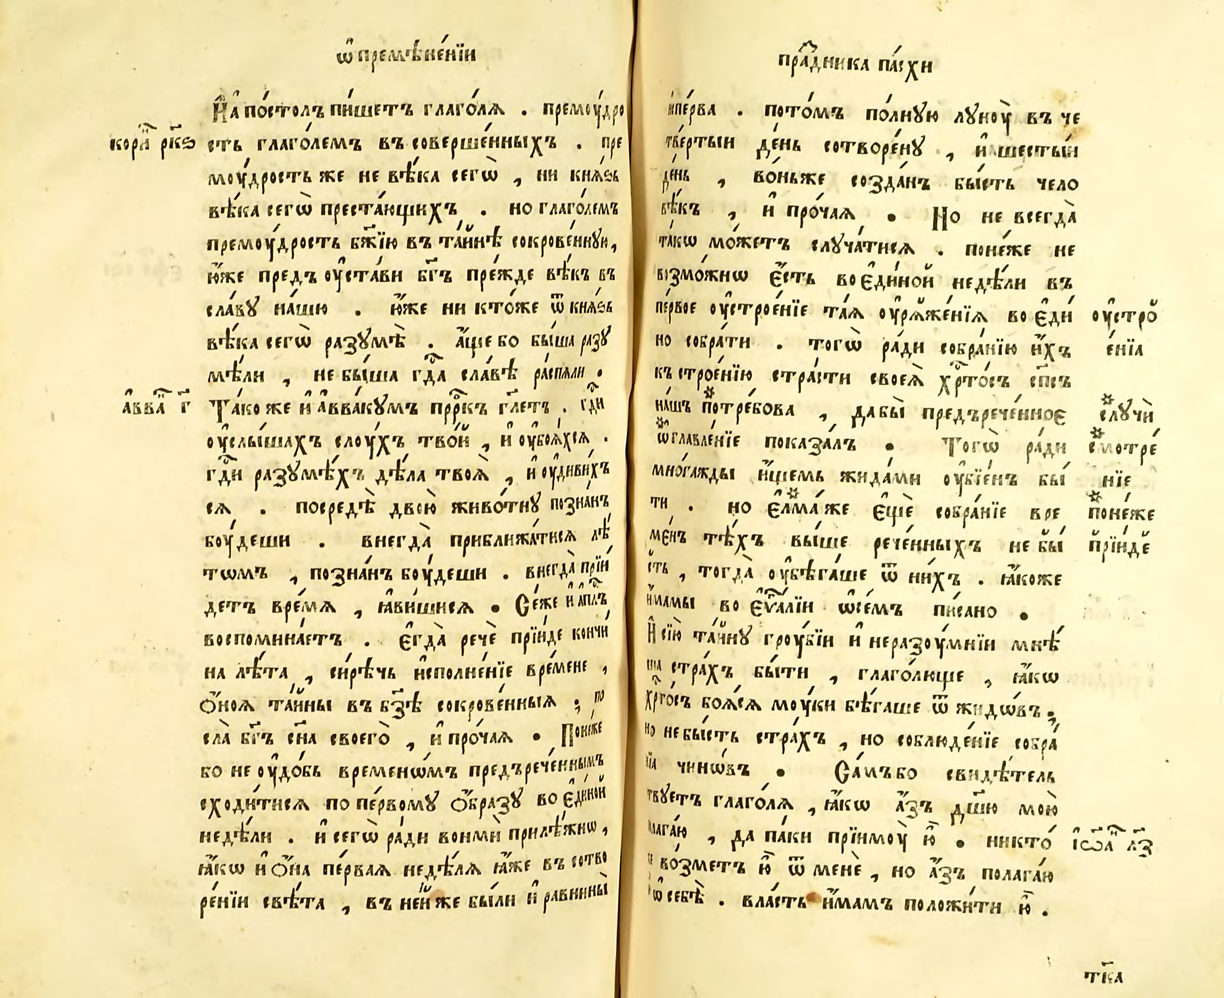 ѡ҆ премѣне́нїи
И҆ а҆по́столъ пи́шетъ глаго́лѧ . премꙋ́дро
корⷩ҇ рк҃ѕ
сть глаго́лемъ въ соверше́нныхъ . пре
мꙋ́дрость же не вѣ́ка сегѡ̀ , ни кнѧ́ѕь
вѣ́ка сегѡ̀ преста́ющихъ . но глаго́лемъ
премꙋ́дрость бж҃їю въ та́йнѣ сокрове́ннꙋю,
ю҆́же предъꙋста́ви бг҃ъ пре́жде вѣ́къ въ
сла́вꙋ на́шю . ю҆́же ни кто́же ѿ кнѧ́ѕь
вѣ́ка сегѡ̀ разꙋмѣ̀ . а҆́ще бо бы́ша разꙋ
мѣ́ли , не бы́ша гдⷭ҇а сла́вѣ распѧ́ли .
а҆вва҃ г҃
Та́ко же и҆ а҆ввакꙋ́мъ прⷪ҇ркъ гл҃етъ . гдⷭ҇и
ꙋ҆слы́шахъ слꙋ́хъ тво́й , и҆ ꙋ҆боѧ́хсѧ .
гдⷭ҇и разꙋмѣ́хъ дѣ́ла твоѧ̀ , и҆ ꙋ҆диви́хъ
сѧ . посредѣ̀ двою̀ живо́тнꙋ позна́нъ
бꙋ́деши . внегда̀ приближа́тисѧ лѣ́
тѡмъ , позна́нъ бꙋ́деши . внегда̀ прїи́
детъ вре́мѧ , ꙗ҆ви́шисѧ . Се́же и҆ а҆пⷭ҇лъ
воспомина́етъ . є҆гда̀ речѐ прїи́де кончи́
на лѣ́та , си́рѣчь и҆сполне́нїе вре́мене ,
ѻ҆́ноѧ та́йны въ бз҃ѣ сокрове́нныѧ ; по
сла̀ бг҃ъ сн҃а своего̀ , и҆ про́чаѧ . Поне́же
бо не ꙋ҆до́бь временѡ́мъ предърече́ннымъ
сходи́тисѧ по пе́рвомꙋ ѻ҆́бразꙋ во є҆ди́ной
недѣ́ли . и҆ сегѡ̀ ра́ди вонмѝ прилѣ́жнѡ ,
ꙗ҆́кѡ и҆ ѻ҆́на пе́рваѧ недѣ́лѧ ꙗ҆́же въ сотво
ре́нїи свѣ́та , въ не́йже бы́ли и҆ равни́ны
пра́здника па́схи
и҆пе́рва . пото́мъ по́лнꙋю лꙋнꙋ̀ въ че
тве́ртыи де́нь сотворе́нꙋ , и҆ шесты́й
де́нь , во́ньже созда́нъ бы́сть чело
вѣ́къ , и҆ про́чаѧ . Но не всегда̀
та́кѡ мо́жетъ слꙋча́тисѧ . поне́же не
возмо́жнѡ є҆́сть во є҆ди́ной недѣ́ли въ
пе́рвое ꙋ҆строе́нїе та́ѧ ꙋ҆рѧже́нїѧ во є҆ди́
ꙋ҆стро
но собра́ти . тогѡ̀ ра́ди собра́нїю и҆́хъ
е́нїа
къ строе́нїю стра́сти своеѧ̀ хрⷭ҇то́съ сп҃съ
на́шъ потре́бова , да бы̀ предърече́нное
слꙋчи
ѡ҆главле́нїе показа́лъ . Тогѡ̀ ра́ди
смотре́
мно́гажды и҆́щемь жида́ми ꙋ҆бїе́нъ бы́
нїе
ти . но є҆лма́же є҆щѐ собра́нїе вре
поне́же
ме́нъ тѣ́хъ вы́ше рече́нныхъ не бы́
прїи́де
сть , тогда̀ ꙋ҆бѣга́ше ѿ ни́хъ . ꙗ҆́коже
и҆́мамы во є҆ѵⷢ҇а́лїи ѡ҆ се́мъ пи́сано .
И҆ сїю̀ та́йнꙋ грꙋ́бїи и҆ неразꙋ́мнїи мнѣ́
ша стра́хъ бы́ти , глаго́люще , ꙗ҆́кѡ
хрⷭ҇то́съ боѧ́сѧ мꙋ́ки бѣ́гаше ѿ жидѡ́въ .
но не бы́сть стра́хъ , но соблюде́нїе собра́
нїа чинѡ́въ . Са́мъ бо свидѣ́тель
твꙋетъ глаго́лѧ , ꙗ҆́кѡ а҆́зъ дш҃ю мою̀
лага́ю , да па́ки прїимꙋ̀ ю҆̀ . никто́
і҆ѡ҃а л҃з
возметъ ю҆̀ ѿ менѐ , но а҆́зъ полага́ю
ѡ҆ себѣ̀ . вла́сть и҆́мамъ положи́ти ю҆̀ .
тк҃а